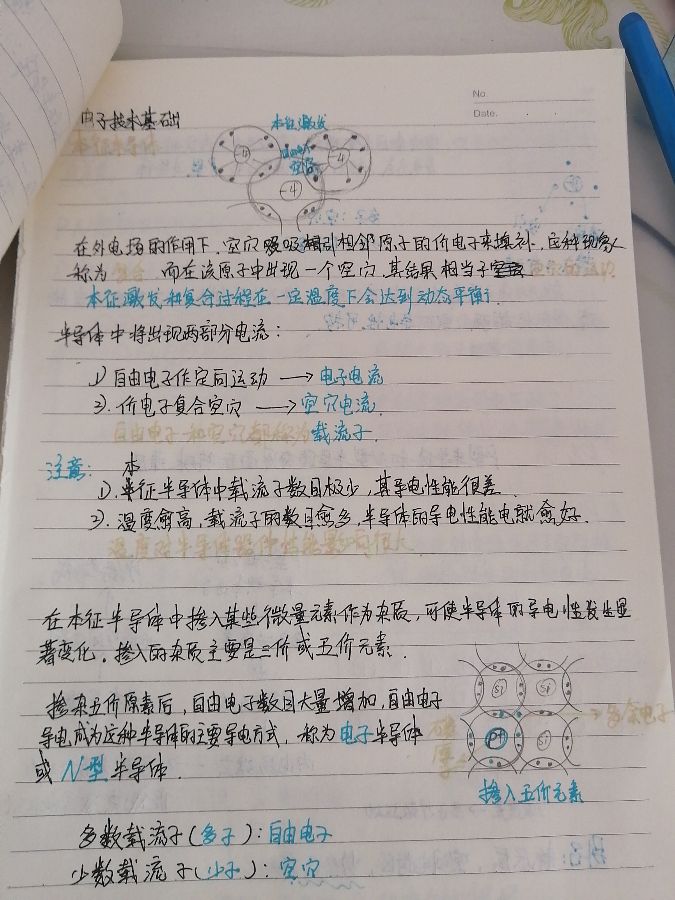 No.
Date.
电子技术基础
本征半导体
本征激发
空穴
-4
-4
-4
在外电场的作用下,空穴吸引相邻原子的价电子来填补,这种现象
称为复合,而在该原子中出现一个空穴,其结果相当于
本征激发和复合过程在一定温度下会达到动态平衡.
半导体中将出现两部分电流:
1) 自由电子作定向运动 → 电子电流
2). 价电子复合空穴 → 空穴电流.
自由电子和空穴都称为载流子.
注意:
本
1). 征半导体中载流子数目极少,其导电性能很差.
2). 温度愈高,载流子的数目愈多,半导体的导电性能电就愈好.
温度对半导体器件性能影响很大
在本征半导体中掺入某些微量元素作为杂质,可使半导体的导电性发生显
著变化.掺入的杂质主要是三价或五价元素.
掺杂五价原素后,自由电子数目大量增加,自由电子
导电成为这种半导体的主要导电方式,称为电子半导体
或N型半导体.
Si
Si
P+
Si
→多余电子
掺入五价元素
多数载流子(多子):自由电子
少数载流子(少子):空穴